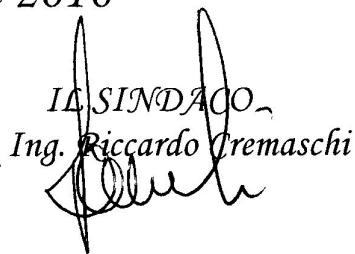 2010
IL SINDACO
Ing. Riccardo Cremaschi